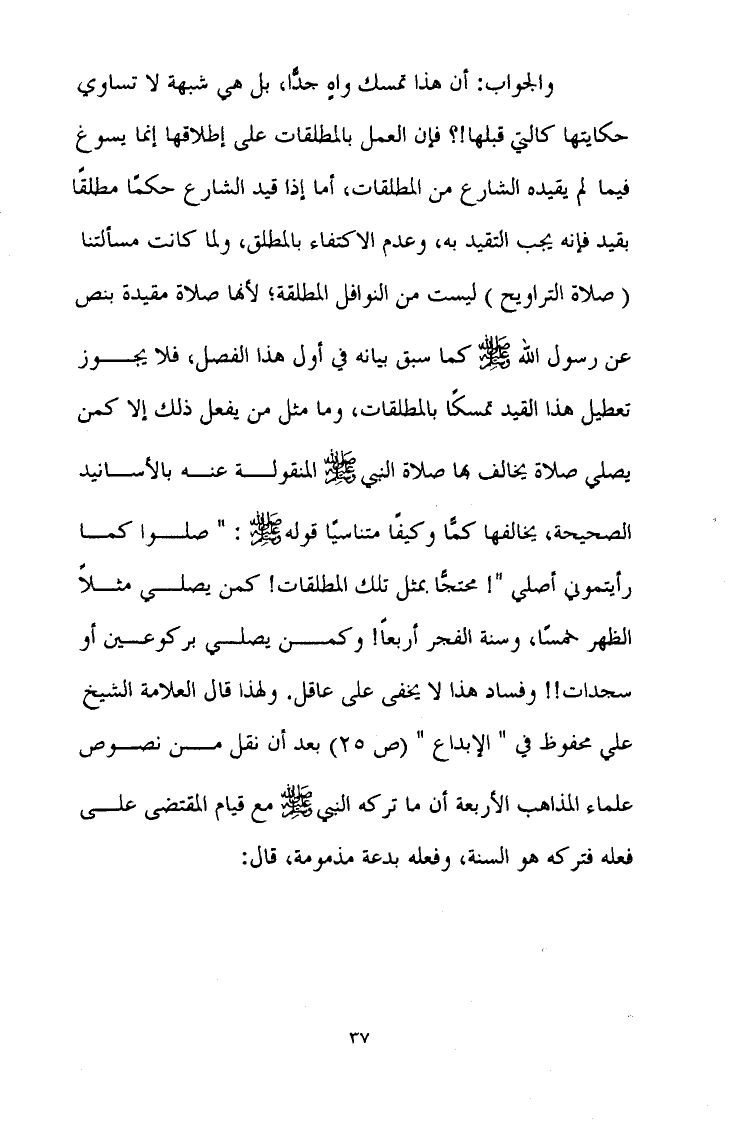 والجواب: أن هذا تمسك واهٍ جدًّا، بل هي شبهة لا تساوي
حكايتها كالتي قبلها!؟ فإن العمل بالمطلقات على إطلاقها إنما يسوغ
فيما لم يقيده الشارع من المطلقات، أما إذا قيد الشارع حكمًا مطلقًا
بقيد فإنه يجب التقيد به، وعدم الاكتفاء بالمطلق، ولما كانت مسألتنا
( صلاة التراويح ) ليست من النوافل المطلقة؛ لأنها صلاة مقيدة بنص
عن رسول الله ﷺ كما سبق بيانه في أول هذا الفصل، فلا يجـــوز
تعطيل هذا القيد تمسكًا بالمطلقات، وما مثل من يفعل ذلك إلا كمن
يصلي صلاة يخالف بها صلاة النبي ﷺ المنقولـــة عنـــه بالأسـانيد
الصحيحة، يخالفها كمًّا وكيفًا متناسيًا قوله ﷺ : " صلـــوا كمـــا
رأيتموني أصلي "! محتجًّا بمثل تلك المطلقات! كمن يصلـــي مثـــلاً
الظهر خمسًا، وسنة الفجر أربعاً! وكمـــن يصلـــي بركوعـــين أو
سجدات!! وفساد هذا لا يخفى على عاقل. ولهذا قال العلامة الشيخ
علي محفوظ في " الإبداع " (ص ٢٥) بعد أن نقل مـــن نصـــوص
علماء المذاهب الأربعة أن ما تركه النبي ﷺ مع قيام المقتضى علـــى
فعله فتركه هو السنة، وفعله بدعة مذمومة، قال:
٣٧